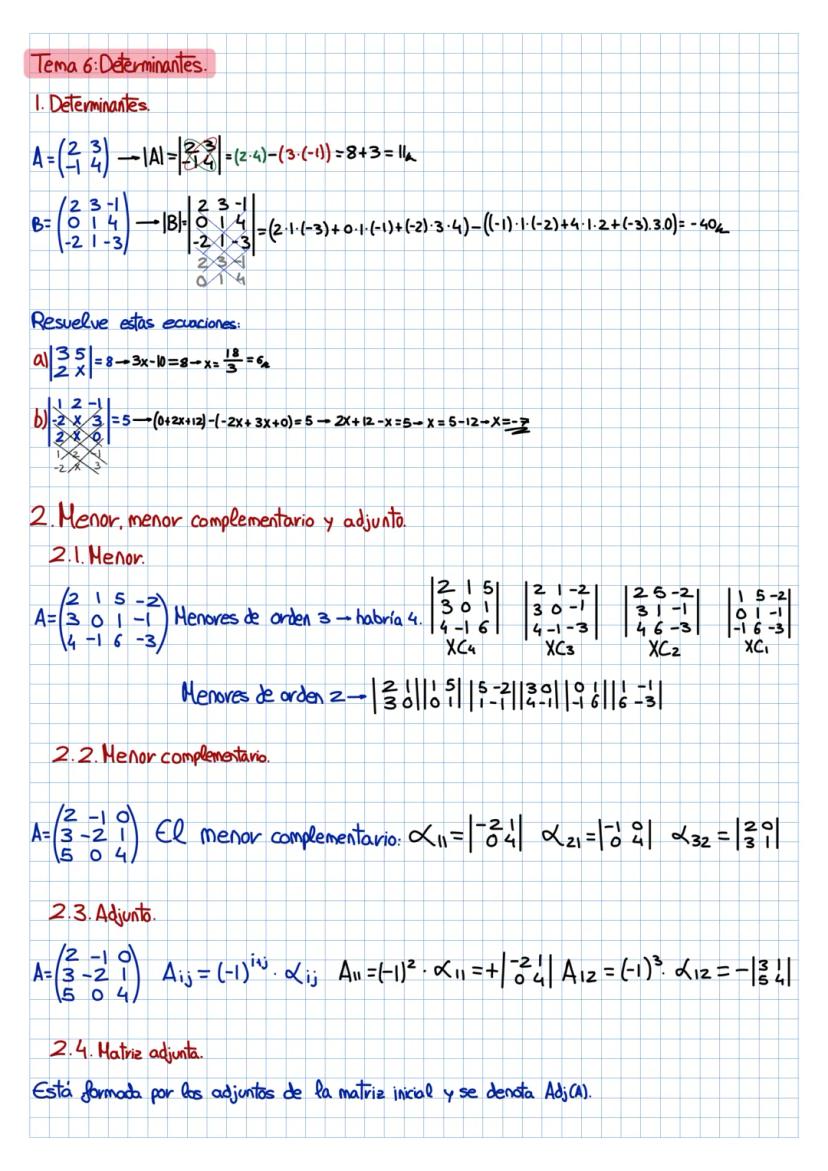 Tema 6: Determinantes.
1. Determinantes.
A = (2 3 / -1 4) → |A| = |2 3 / -1 4| = (2·4)-(3·(-1)) = 8+3 = 11
B = (2 3 -1 / 0 1 4 / -2 1 -3) → |B| = |2 3 -1 / 0 1 4 / -2 1 -3| = (2·1·(-3)+0·1·(-1)+(-2)·3·4)-((-1)·1·(-2)+4·1·2+(-3).3.0) = -40
2 3 -1
0 1 4
Resuelve estas ecuaciones:
a) |3 5 / 2 x| = 8 → 3x-10=8 → x = 18/3 = 6
b) |1 2 -1 / -2 x 3 / 2 x 0| = 5 → (0+2x+12)-(-2x+3x+0) = 5 → 2x+12-x=5 → x = 5-12 → x = -7
1 2 -1
-2 x 3
2. Menor, menor complementario y adjunto.
2.1. Menor.
A = (2 1 5 -2 / 3 0 1 -1 / 4 -1 6 -3) Menores de orden 3 → habría 4. |2 1 5 / 3 0 1 / 4 -1 6| |2 1 -2 / 3 0 -1 / 4 -1 -3| |2 5 -2 / 3 1 -1 / 4 6 -3| |1 5 -2 / 0 1 -1 / -1 6 -3|
XC4 XC3 XC2 XC1
Menores de orden 2 → |2 1 / 3 0| |1 5 / 0 1| |5 -2 / 1 -1| |3 0 / 4 -1| |0 1 / -1 6| |1 -1 / 6 -3|
2.2. Menor complementario.
A = (2 -1 0 / 3 -2 1 / 5 0 4) El menor complementario: α11 = |-2 1 / 0 4| α21 = |-1 0 / 0 4| α32 = |2 0 / 3 1|
2.3. Adjunto.
A = (2 -1 0 / 3 -2 1 / 5 0 4) Aij = (-1)^i+j · αij A11 = (-1)² · α11 = +|-2 1 / 0 4| A12 = (-1)³ · α12 = -|3 1 / 5 4|
2.4. Matriz adjunta.
Está formada por los adjuntos de la matriz inicial y se denota Adj(A).